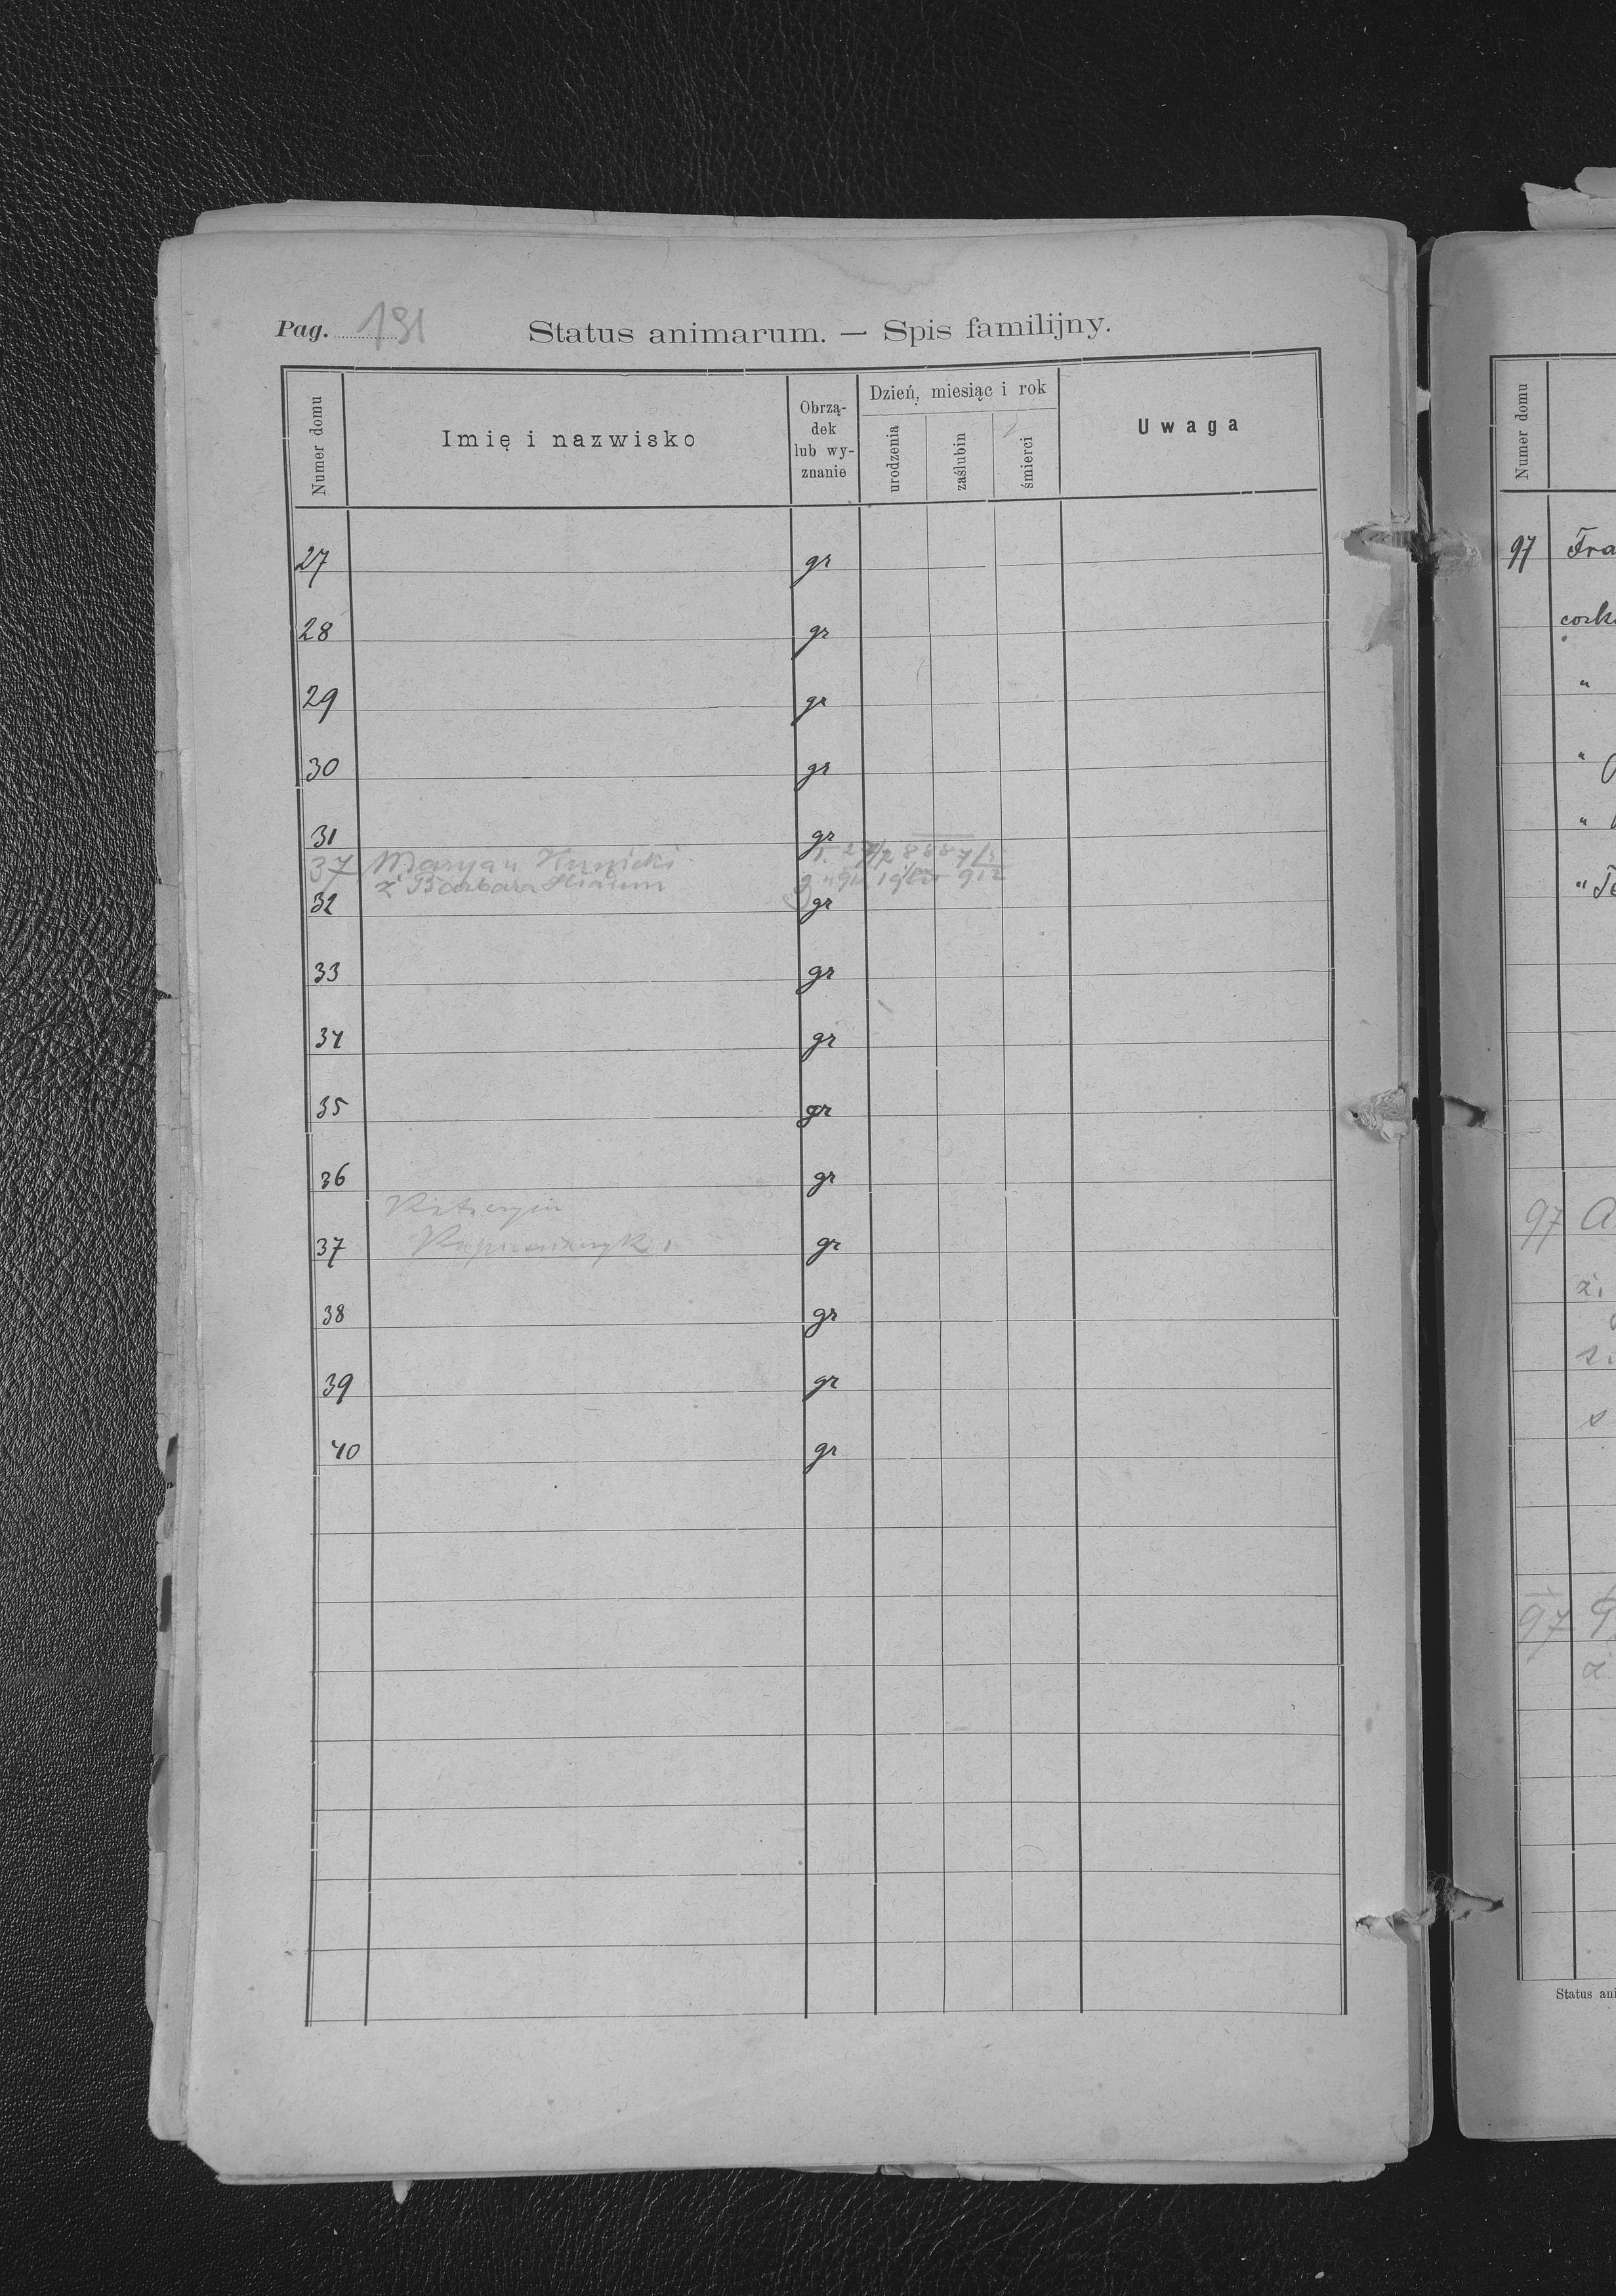 Pag. 191
Status animarum. — Spis familijny.
Numer domu
Imię i nazwisko
Obrzą-
dek
lub wy-
znanie
Dzień, miesiąc i rok
urodzenia
zaślubin
śmierci
Uwaga
27 gr
28 gr
29 gr
30 gr
31 gr
37 Maryan
ż Barbara
32 gr
33 gr
34 gr
35 gr
36 gr
37 gr
38 gr
39 gr
40 gr
Numer domu
97 Fra
cork
"
"
"
" Te
97 A
ż.
s.
s
97
ż
Status ani